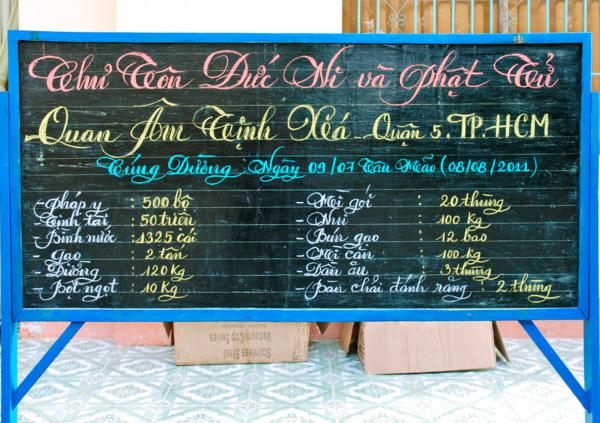 Chư Tôn Đức Ni và Phật Tử
Quan Âm Tịnh Xá Quận 5. TP. HCM
Cúng Dường Ngày 09/07 Tân Mão (08/08/2011)
- Pháp y : 500 bộ
- Tịnh tài : 50 triệu
- Bình nước : 1325 cái
- Gạo : 2 tấn
- Đường : 120 Kg
- Bột ngọt : 10 Kg
- Mì gói : 20 thùng
- Nui : 100 kg
- Bún gạo : 12 bao
- Mì căn : 100 kg
- Dầu ăn : 3 thùng
- Bàn chải đánh răng : 2 thùng
Stainless Steel
Vacuum Cup Series